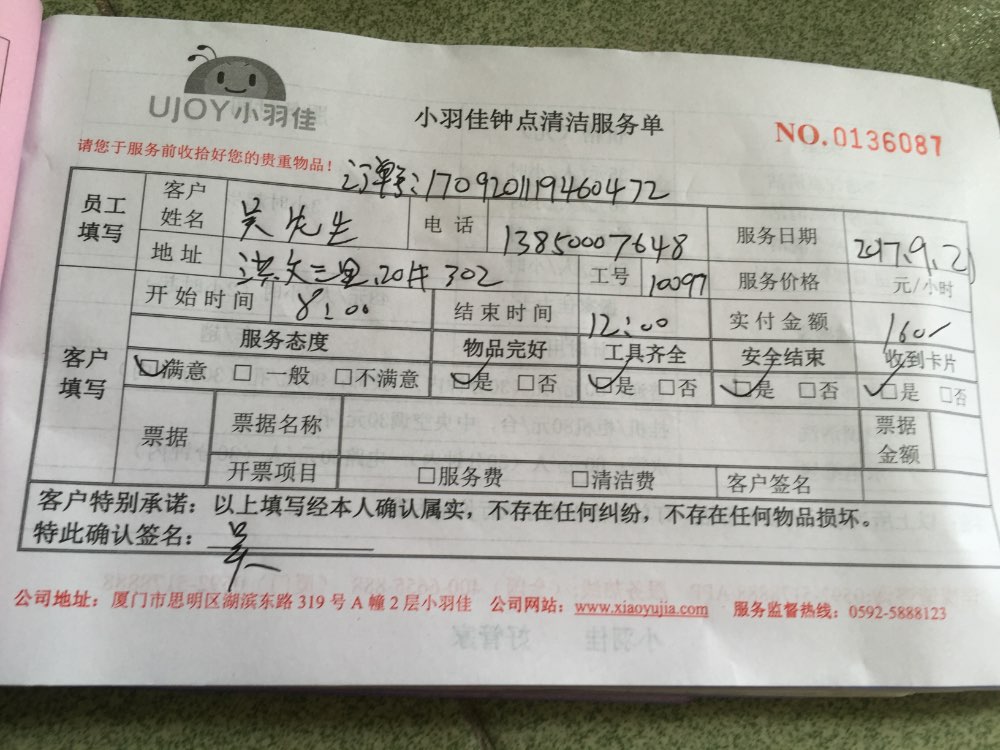 UJOY小羽佳
小羽佳钟点清洁服务单
NO.0136087
请您于服务前收拾好您的贵重物品！
订单号：170920119460472
员工填写 客户姓名 吴先生 电话 13850007648 服务日期 2017.9.21
地址 洪文三里.20件302 工号 10097 服务价格 元/小时
客户填写 开始时间 8:00 结束时间 12:00 实付金额 160/
服务态度 物品完好 工具齐全 安全结束 收到卡片
☑满意 □一般 □不满意 ☑是 □否 ☑是 □否 ☑是 □否 ☑是 □否
票据 票据名称 票据金额
开票项目 □服务费 □清洁费 客户签名
客户特别承诺：以上填写经本人确认属实，不存在任何纠纷，不存在任何物品损坏。
特此确认签名：吴
公司地址：厦门市思明区湖滨东路319号A幢2层小羽佳 公司网站：www.xiaoyujia.com 服务监督热线：0592-5888123